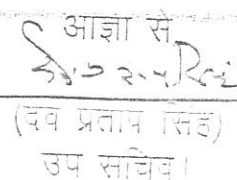 आज्ञा से
(देव प्रताप सिंह)
उप सचिव।